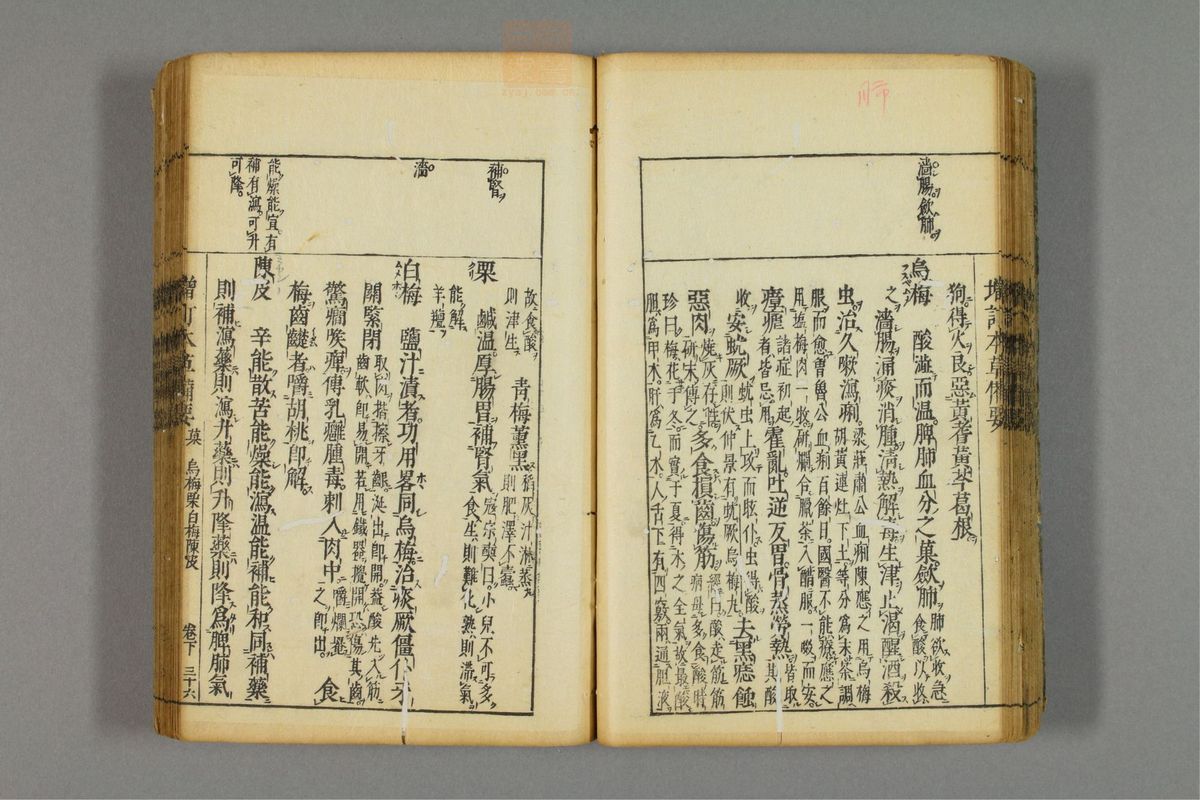 濇腸歛肺
狗。得火良。惡黃芪黃芩葛根。
烏梅 酸澁而溫。脾肺血分之菓。歛肺 肺欲收急食酸以收之
濇腸。涌痰消腫。淸熱解毒。生津止渴。醒酒殺
虫。治久嗽瀉痢。梁莊肅公血痢。陳應之用烏梅胡黃連灶下土等分爲末。茶調
服而愈。曾魯公血痢百餘日。國醫不能療。應之用塩梅肉一枚。硏爛合臘茶入醋服。一啜而安。
瘴瘧 諸症初起者皆忌用 霍亂。吐逆反胃。骨蒸勞熱。皆取其酸
收 安蚘厥 蚘虫上攻而眩仆。虫得酸則伏。仲景有蚘厥烏梅丸 去黑痣。蝕
惡肉。燒灰存性硏末傅之 多食損齒傷筋 經曰。酸走筋。筋病毋多食酸。時
珍曰。梅花于冬而實于夏。得木之全氣。故最酸。膽爲甲木。肝爲乙木。人舌下有四竅。兩通胆液。
補腎
濇
能燥能宣。有
補有瀉。可升
可降。
故食酸則津生 靑梅薰黑。稻灰汁淋蒸則肥澤不蠹
栗 鹹溫。厚腸胃。補腎氣 寇宗奭曰。小兒不可多食。生則難化。熟則滯氣。
能解羊羶
白梅 鹽汁漬者。功用畧同烏梅。治痰厥僵仆。牙
關緊閉 取肉揩擦牙齦。涎出卽開。蓋酸先入筋齒軟卽易開。若用鐵器攪開。恐傷其齒。
驚癇喉痺。傅乳癰腫毒。刺入肉中。嚼爛搽之卽出。食
梅齒䶢者。嚼胡桃卽解。
陳皮 辛能散。苦能燥能瀉。溫能補能和。同補藥
則補。瀉藥則瀉。升藥則升。降藥則降。爲脾肺氣
增訂本草備要 菓 烏梅栗白梅陳皮 卷下 三十六